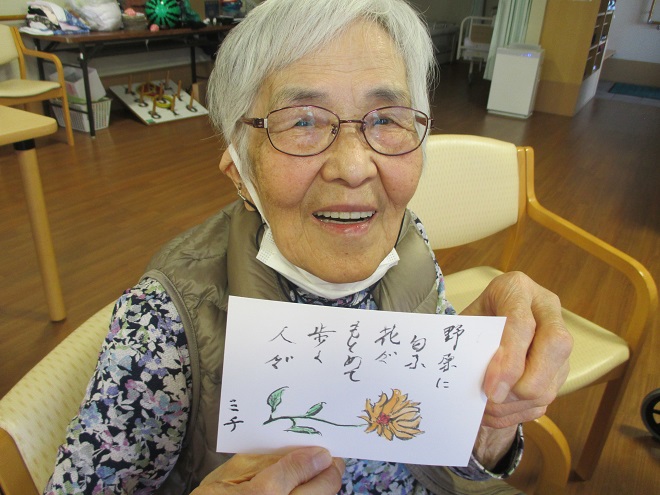 野原に
匂ふ
花が
もとめて
歩く
人が
ミチ